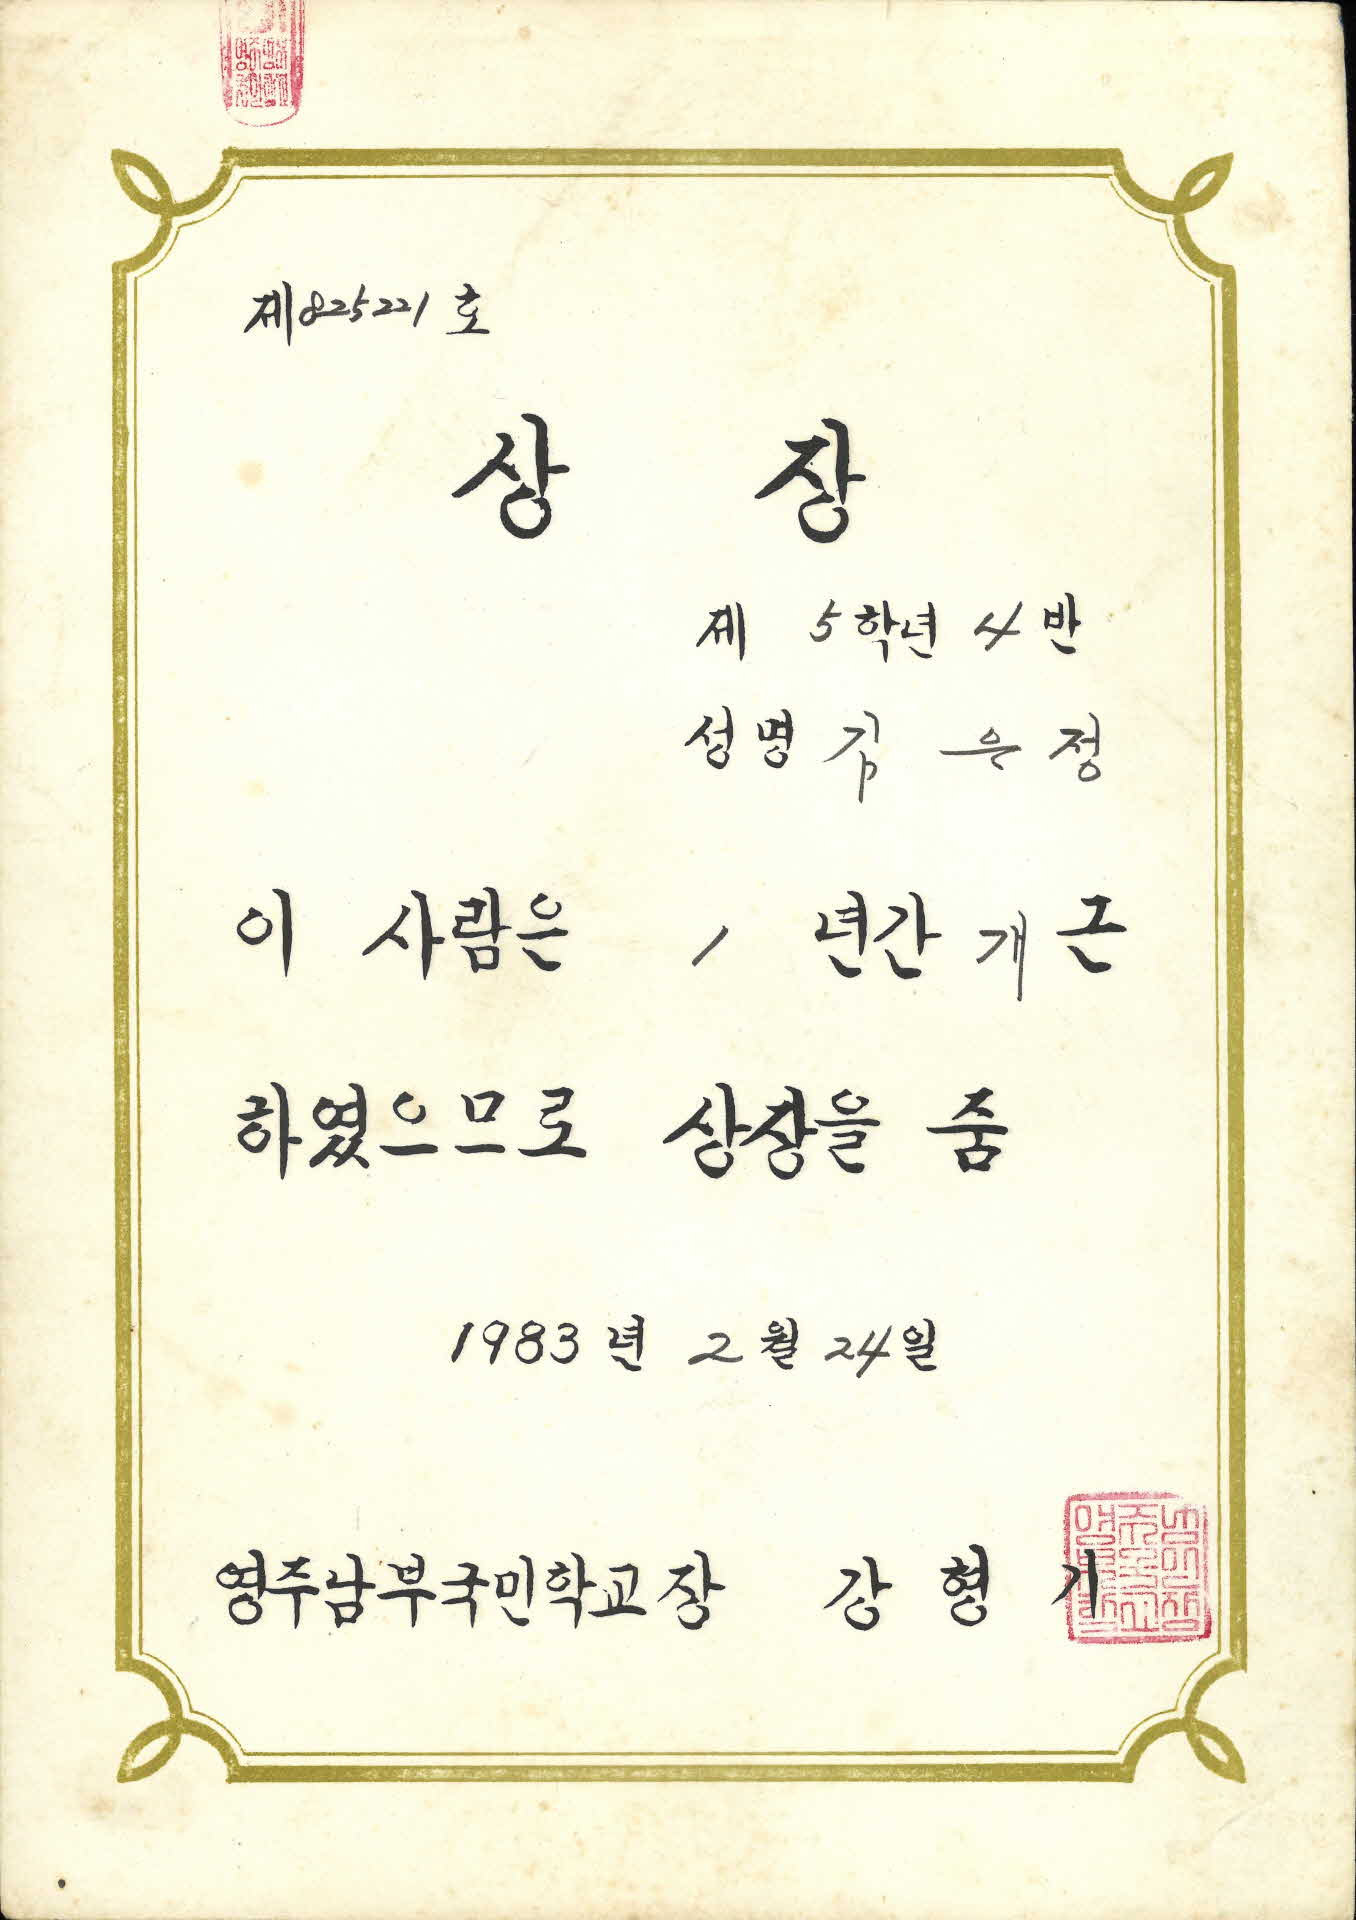 제825221호
상 장
제 5학년 4반
성명 김 은 정
이 사람은 1 년간 개근
하였으므로 상장을 줌
1983년 2월 24일
영주남부국민학교장 강 형 기